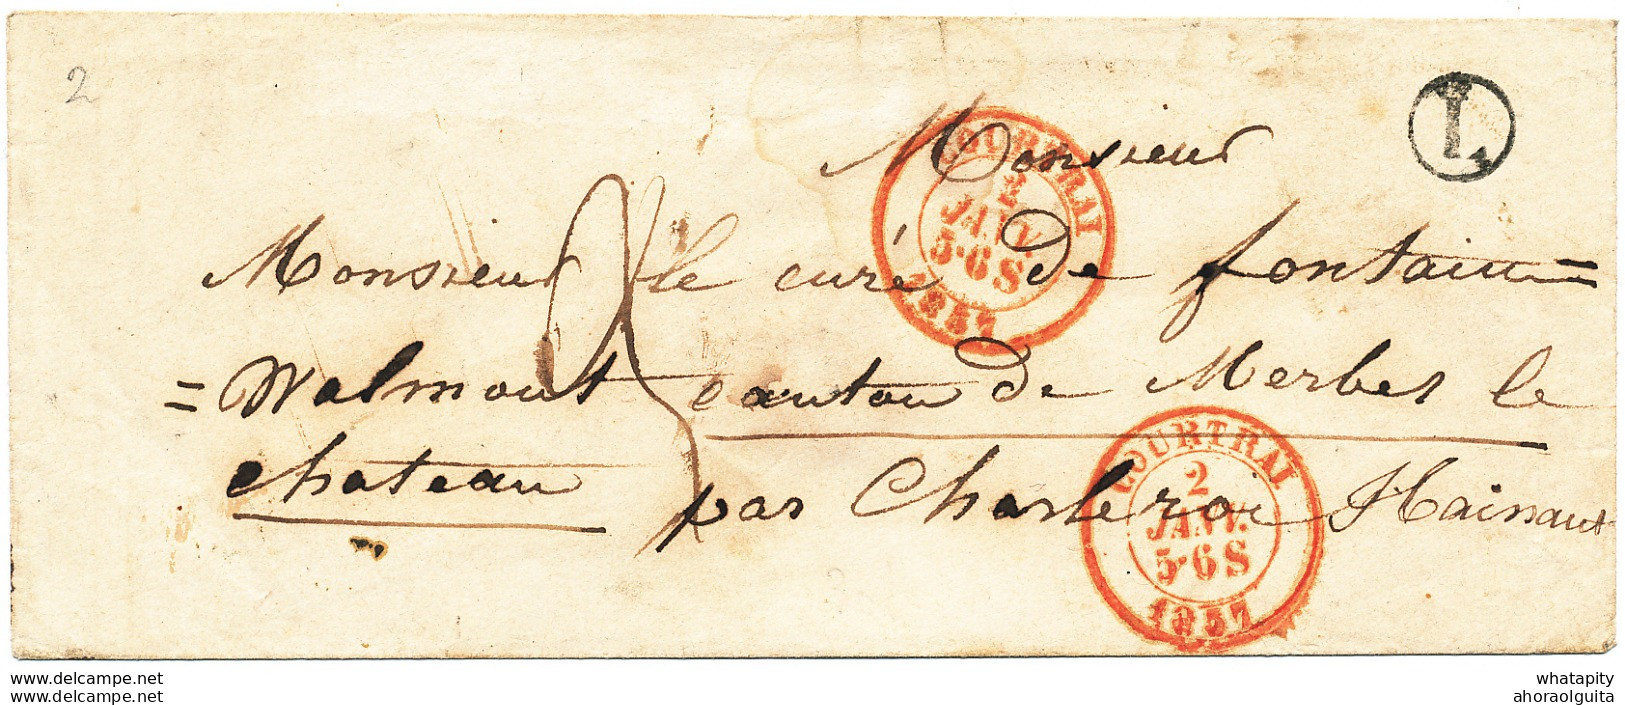 2
Monsieur
L
4
COURTRAI
2
JANV.
5·6S
1857
Monsieur le curé de fontaine=
=Walmont canton de Merbes le
chateau par Charleroi Hainaut
COURTRAI
2
JANV.
5·6S
1857
delcampe.net
whatapity
delcampe.net
ahoraolguita